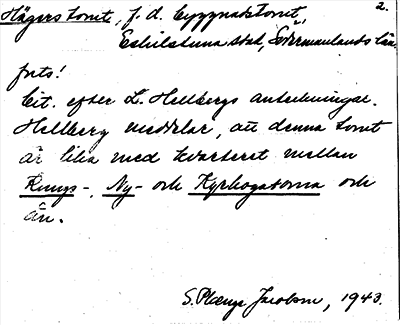 Hägers tomt, f. d. byggnadstomt, 2.
Eskilstuna stad, Södermanlands län
forts!
Cit. efter L. Hellbergs anteckningar.
Hellberg meddelar, att denna tomt
är lika med kvarteret mellan
Kungs-, Ny- och Kyrkogatorna och
ån.
S. Jacobson, 1943.